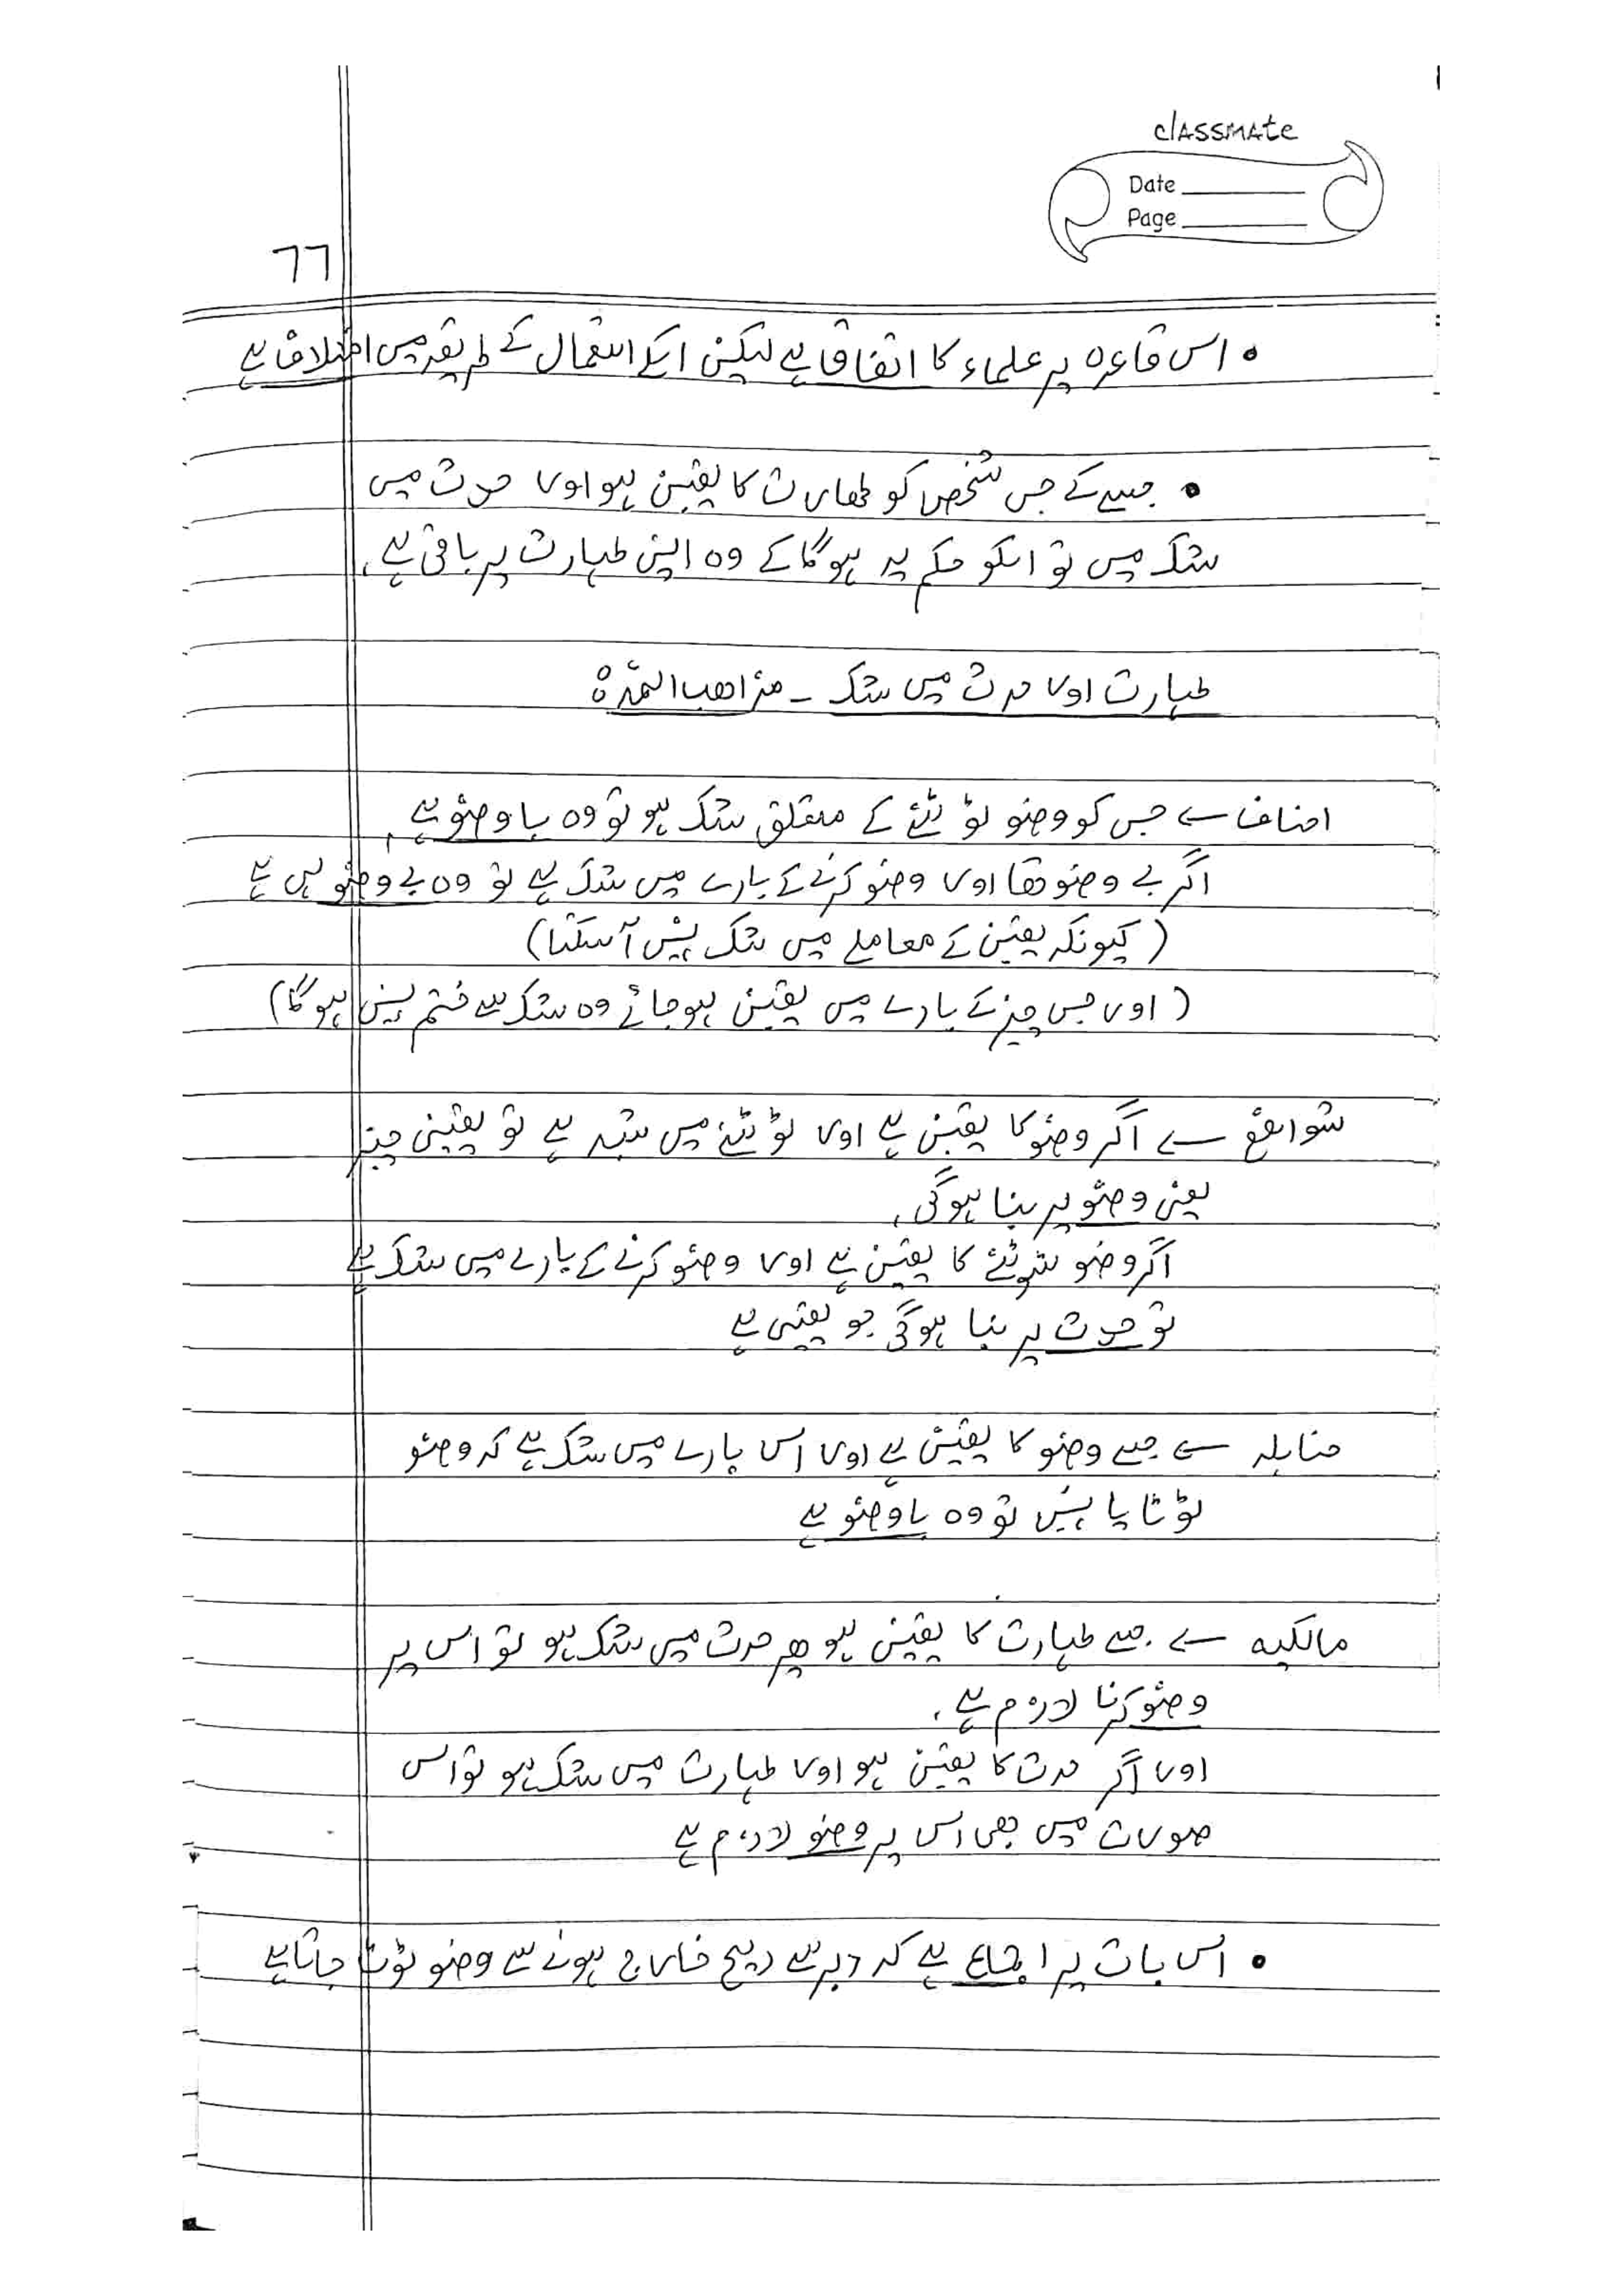 classmate
Date
Page
77
• اس قاعدہ پر علماء کا اتفاق ہے لیکن اسکے استعمال کے طریقہ میں اختلاف ہے
• جیسے کے جس شخص کو طھارت کا یقین ہو اور حدث میں
شک میں تو اسکو حکم یہ ہوگا کے وہ اپنی طہارت پر باقی ہے۔
طہارت اور حدث میں شک - مذاھب
احناف سے جس کو وضو ٹوٹنے کے متعلق شک ہو تو وہ باوضو ہے۔
اگر بے وضو تھا اور وضو کرنے کے بارے میں شک ہے تو وہ بے وضو ہی ہے
(کیونکہ یقین کے معاملے میں شک نہیں آسکتا)
(اور جس چیز کے بارے میں یقین ہو جائے وہ شک سے ختم نہیں ہوگا)
شوافع سے اگر وضو کا یقین ہے اور ٹوٹنے میں شبہ ہے تو یقینی چیز
یعنی وضو پر بنا ہوگی۔
اگر وضو ٹوٹنے کا یقین ہے اور وضو کرنے کے بارے میں شک ہے
تو حدث پر بنا ہوگی جو یقینی ہے
حنابلہ سے جسے وضو کا یقین ہے اور اس بارے میں شک ہے کہ وضو
ٹوٹا یا نہیں تو وہ باوضو ہے
مالکیہ سے جسے طہارت کا یقین ہو پھر حدث میں شک ہو تو اس پر
وضو کرنا لازم ہے۔
اور اگر حدث کا یقین ہو اور طہارت میں شک ہو تو اس
صورت میں بھی اس پر وضو لازم ہے
• اس بات پر اجماع ہے کہ دبر سے ریح خارج ہونے سے وضو ٹوٹ جاتا ہے